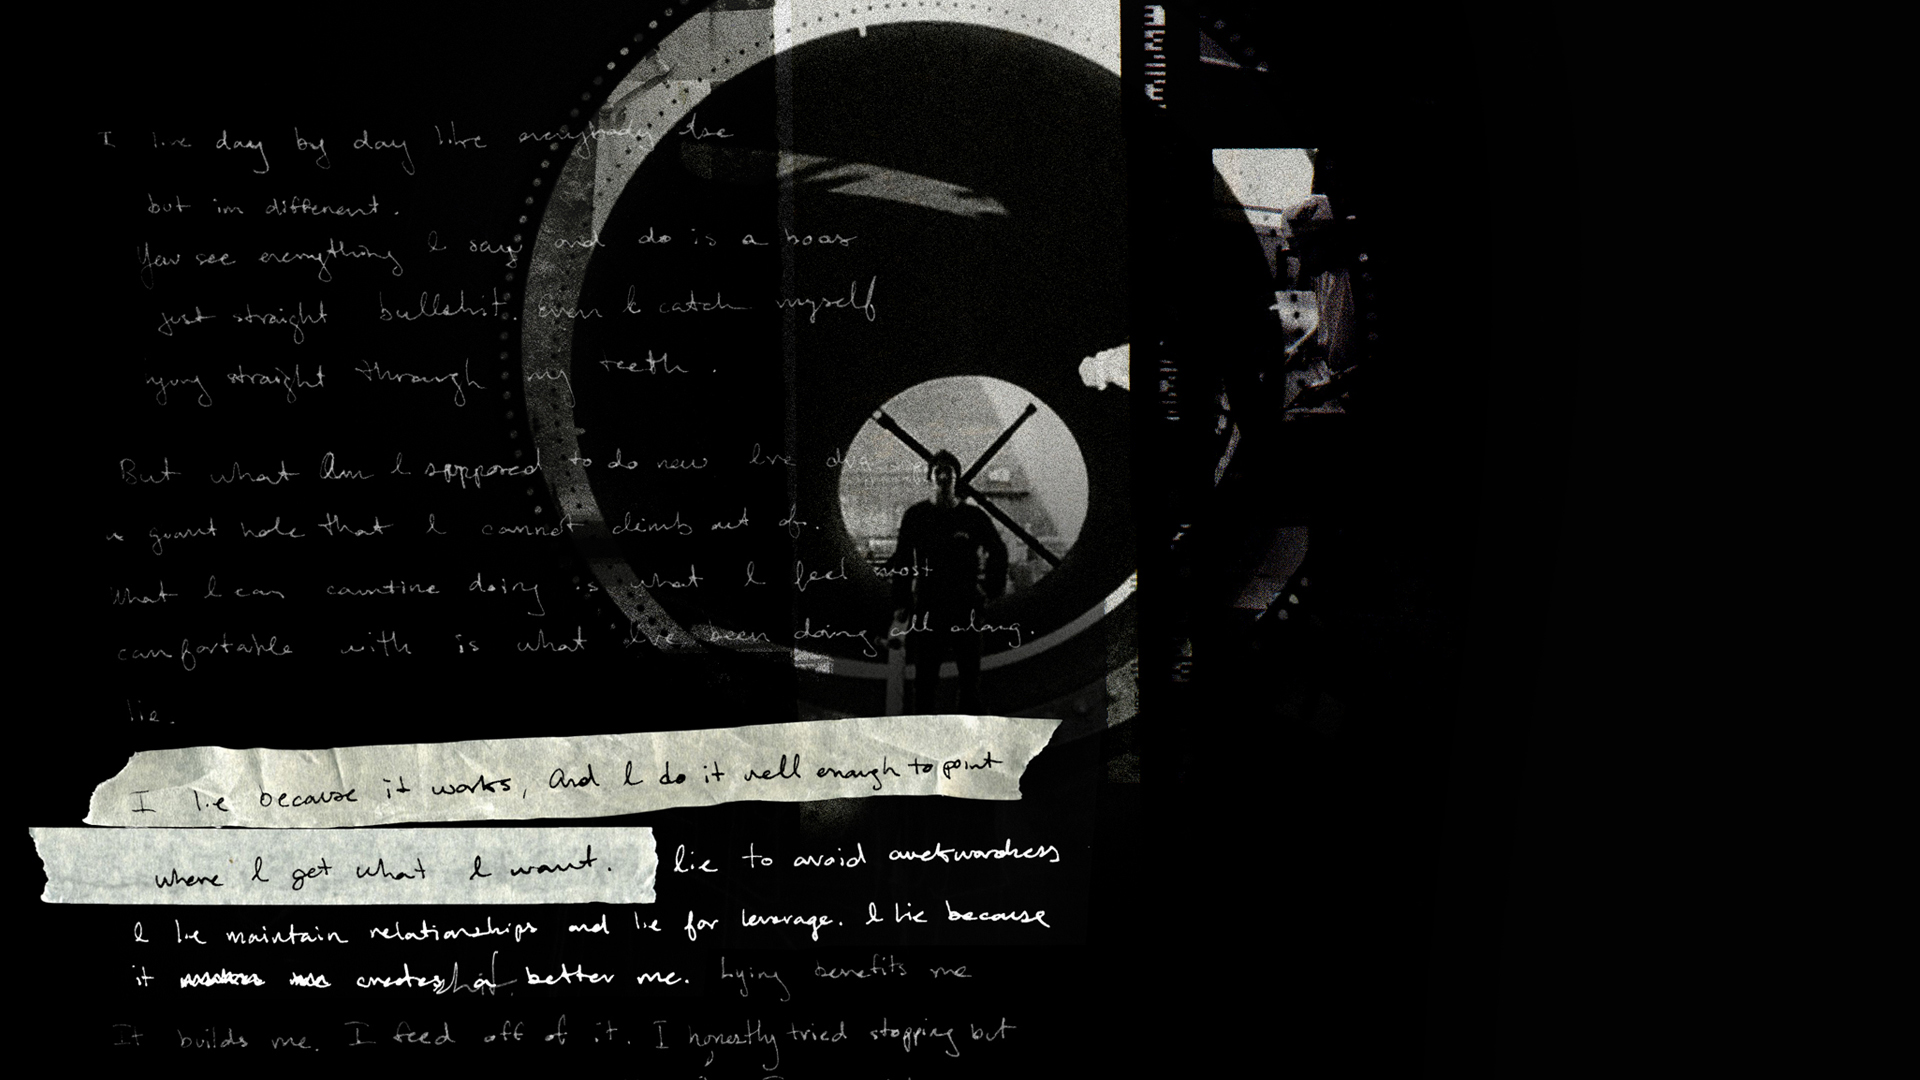 I live day by day like everybody else
but im different.
You see everything I say and do is a hoax
just straight bullshit. Even I catch myself
lying straight through my teeth.
But what Am I supposed to do now Ive dug
a giant hole that I cannot climb out of.
What I can countine doing is what I feel most
comfortable with is what Ive been doing all along.
lie.
I lie because it works, And I do it well enough to point
where I get what I want. lie to avoid awkwardness
I lie maintain relationships and lie for leverage. I lie because
it creates a better me. Lying benefits me
It builds me. I feed off of it. I honestly tried stopping but